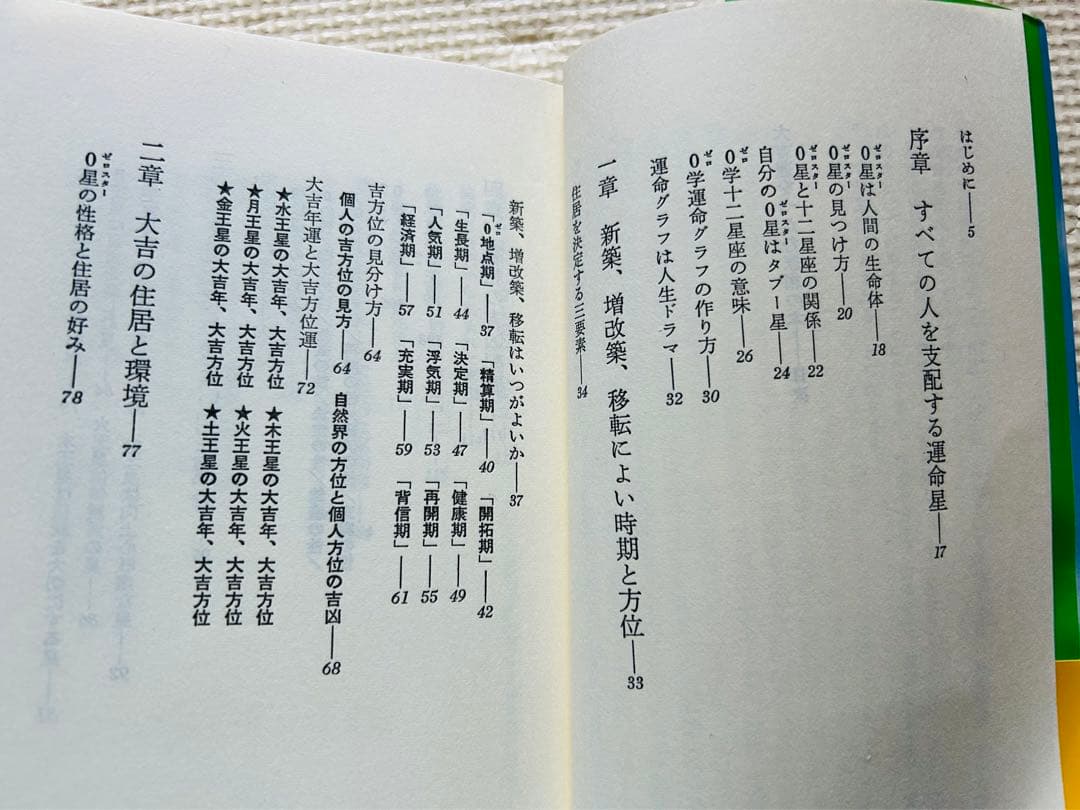 はじめに——5
序章 すべての人を支配する運命星——17
0星は人間の生命体——18
0星の見つけ方——20
0星と十二星座の関係——22
自分の0星はタブー星——24
0学十二星座の意味——26
0学運命グラフの作り方——30
運命グラフは人生ドラマ——32
一章 新築、増改築、移転によい時期と方位——33
住居を決定する三要素——34
新築、増改築、移転はいつがよいか——37
「0地点期」——37 「精算期」——40 「開拓期」——42
「生長期」——44 「決定期」——47 「健康期」——49
「人気期」——51 「浮気期」——53 「再開期」——55
「経済期」——57 「充実期」——59 「背信期」——61
吉方位の見分け方——64
個人の吉方位の見方——64 自然界の方位と個人方位の吉凶——68
大吉年運と大吉方位運——72
★水王星の大吉年、大吉方位 ★木王星の大吉年、大吉方位
★月王星の大吉年、大吉方位 ★火王星の大吉年、大吉方位
★金王星の大吉年、大吉方位 ★土王星の大吉年、大吉方位
二章 大吉の住居と環境——77
0星の性格と住居の好み——78